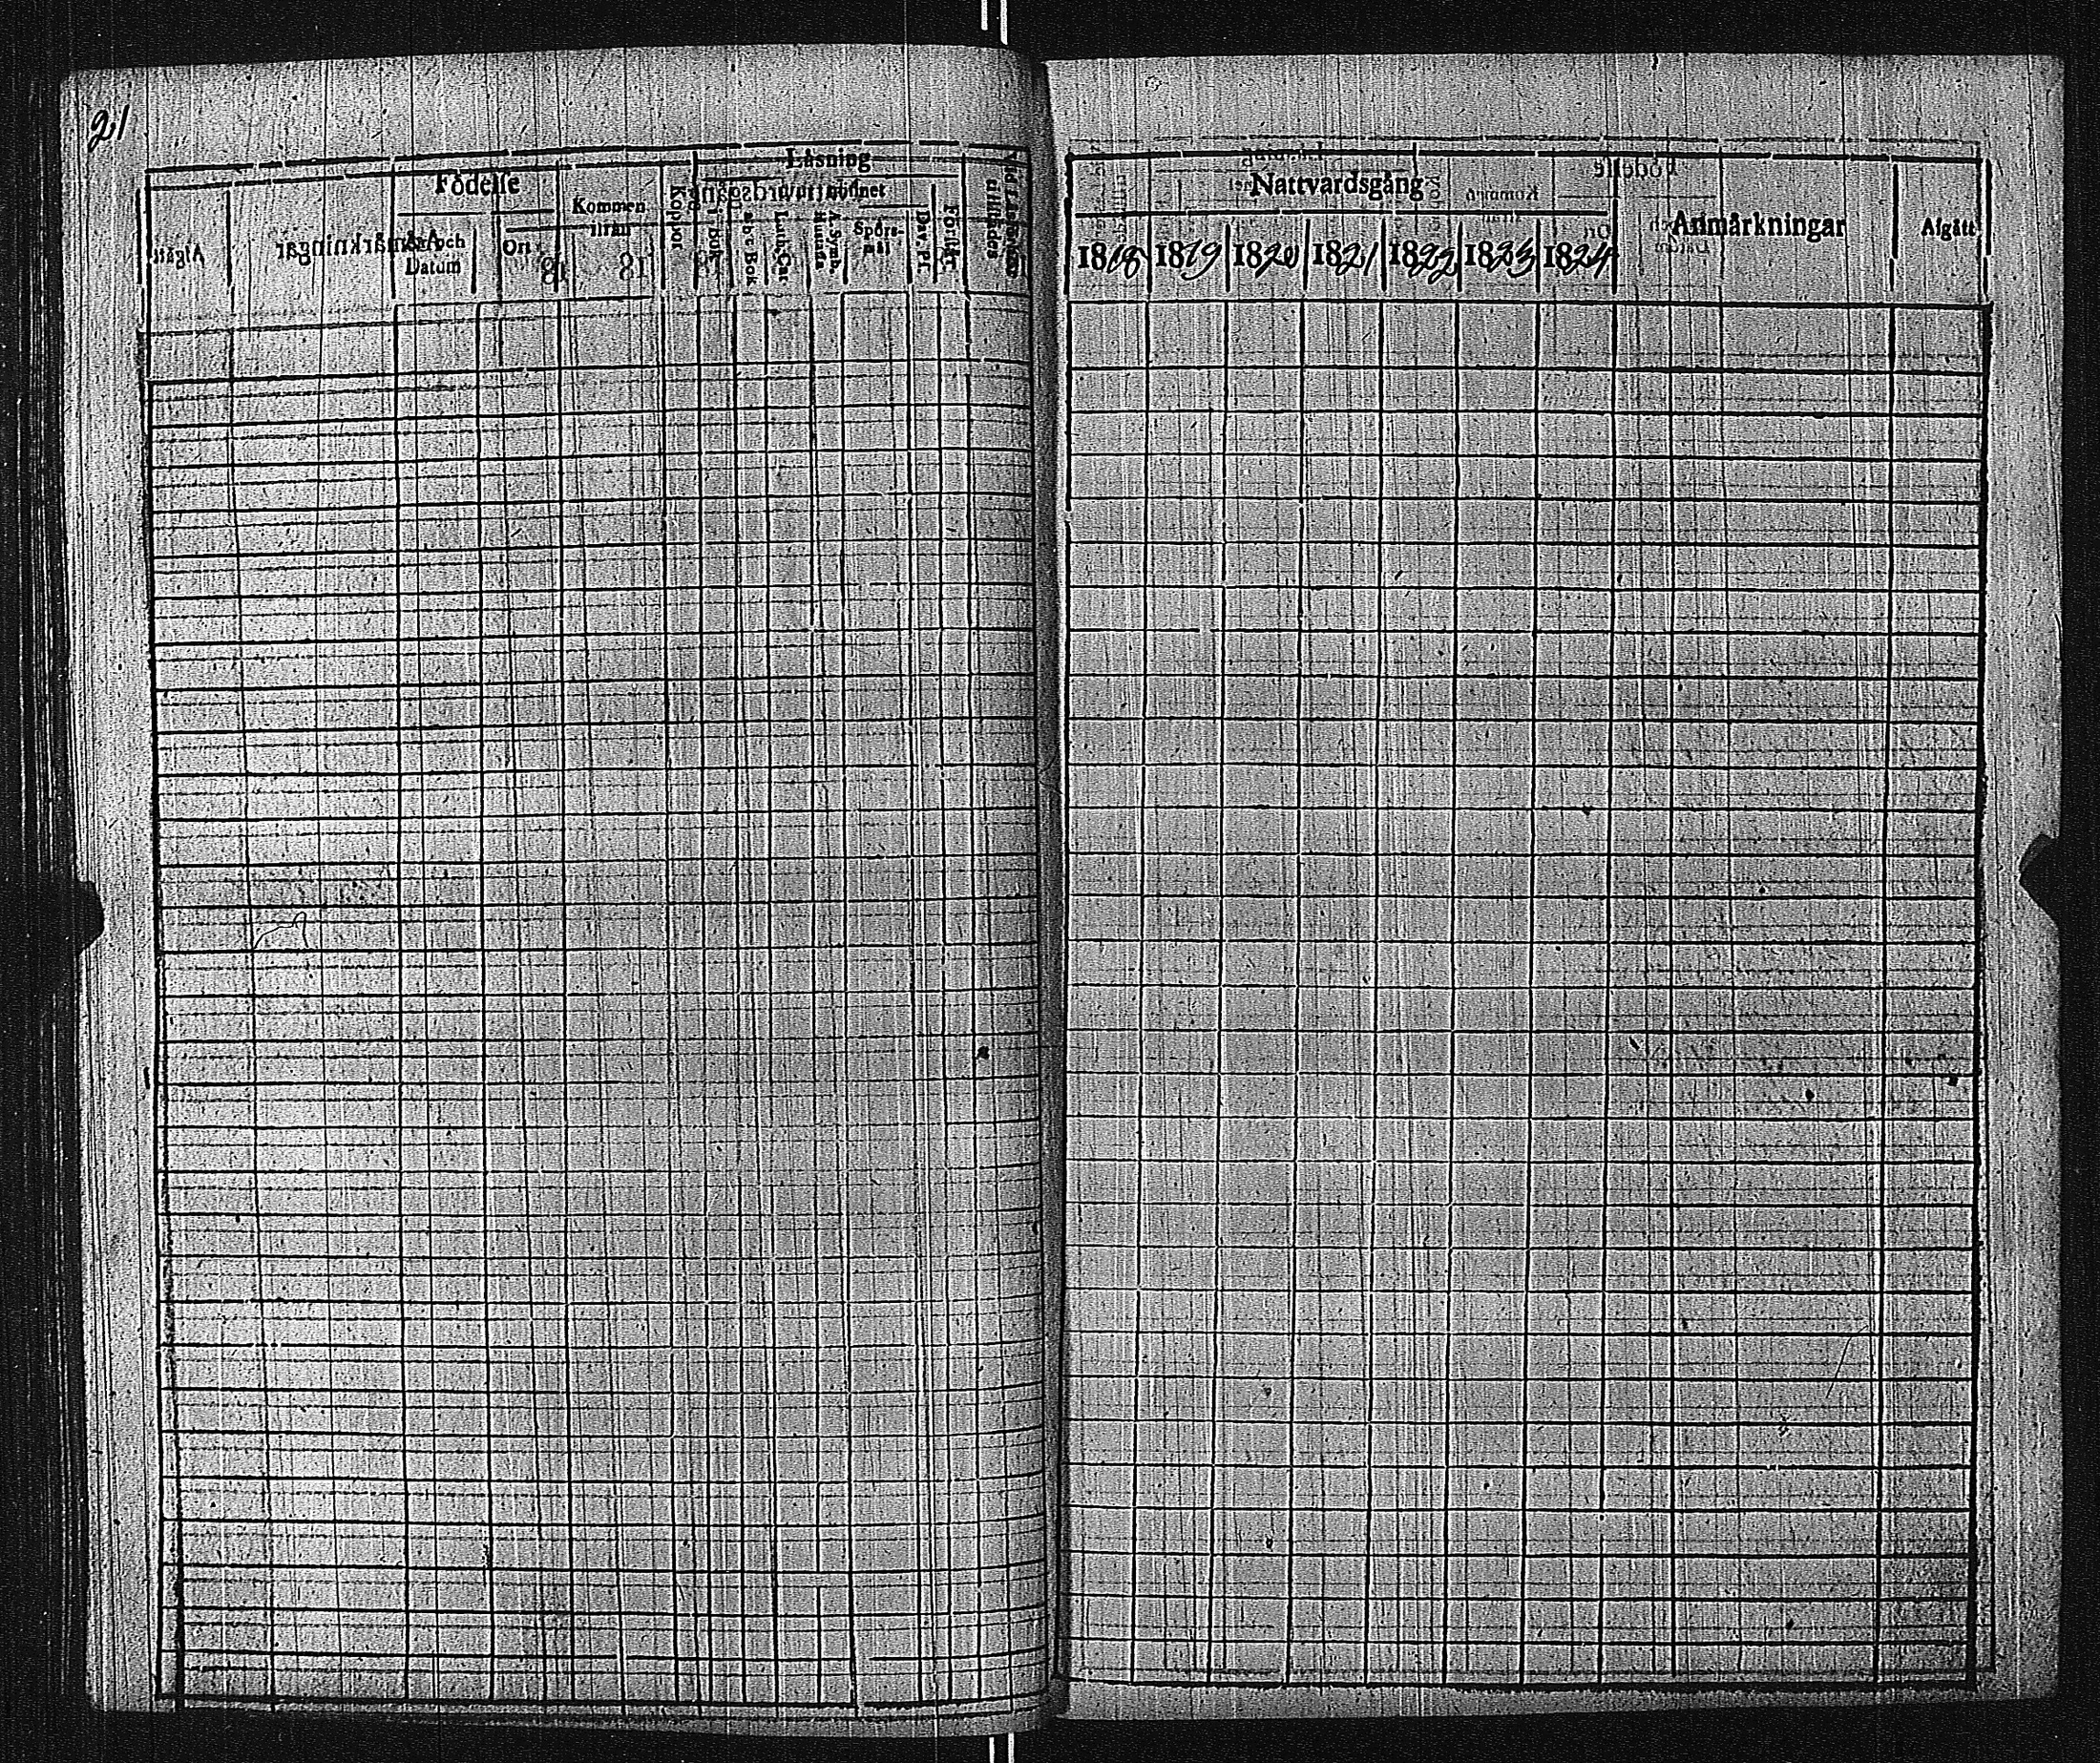 21
Födelse
År och Datum
Ort
Kommen ifrån
Koppor
Läsning
i Bok
a b c Bok
Luth. Cat.
Hustafla
A. Symb.
Spörsmål
Dav. Ps.
Förhör
Nattvardsgång
1818 1819 1820 1821 1822 1823 1824
Anmärkningar
Afgått